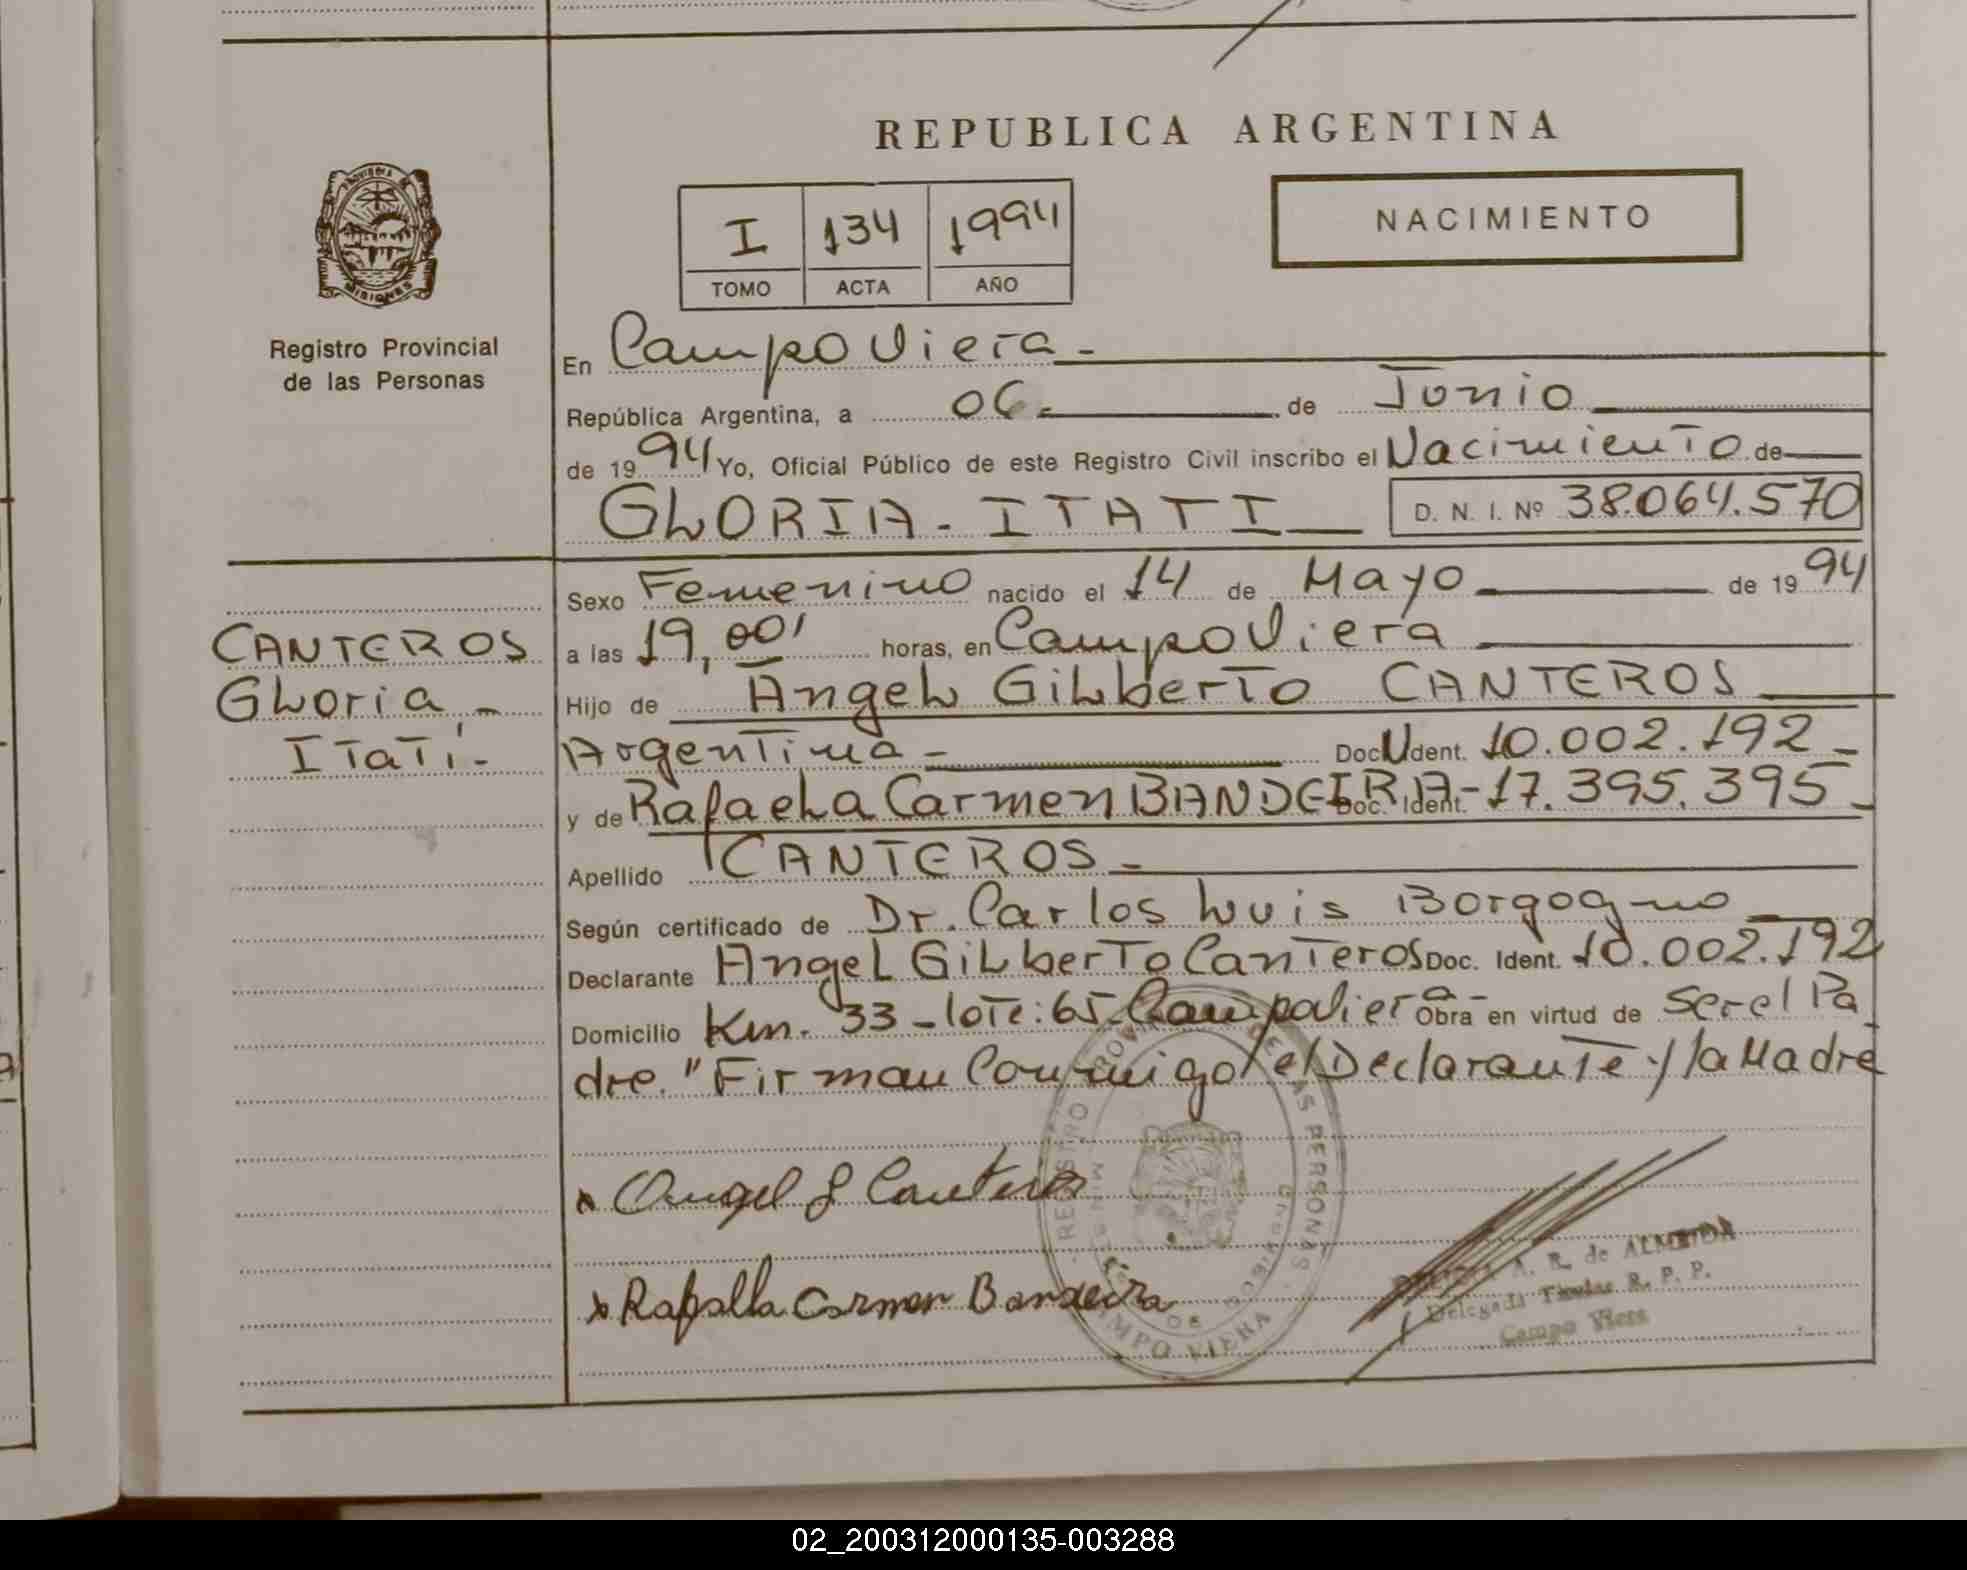 REPUBLICA ARGENTINA
NACIMIENTO
I 134 1994
TOMO ACTA AÑO
PROVINCIA DE
MISIONES
Registro Provincial
de las Personas
En Campo Viera -
República Argentina, a 06 - de Junio
de 1994 Yo, Oficial Público de este Registro Civil inscribo el Nacimiento de
GLORIA - ITATI D. N. I. Nº 38.064.570
Sexo Femenino nacido el 14 de Mayo de 1994
CANTEROS
Gloria -
Itatí -
a las 19,00' horas, en Campo Viera
Hijo de Angel Gilberto CANTEROS
Argentina - Doc. Ident. 10.002.192 -
y de Rafaela Carmen BANDEIRA - Doc. Ident. 17.395.395 -
Apellido CANTEROS -
Según certificado de Dr. Carlos Luis Borgogno
Declarante Angel Gilberto Canteros Doc. Ident. 10.002.192
Domicilio Km. 33 - lote: 65 - Campo Viera - Obra en virtud de Ser el Pa
dre. "Firman Conmigo el Declarante y la Madre
REGISTRO PROVINCIAL DE LAS PERSONAS
CAMPO VIERA
x Angel G Canteros
x Rafaella Carmen Bandeira
A. R. de ALMEIDA
Delegada Titular R. P. P.
Campo Viera
02_200312000135-003288